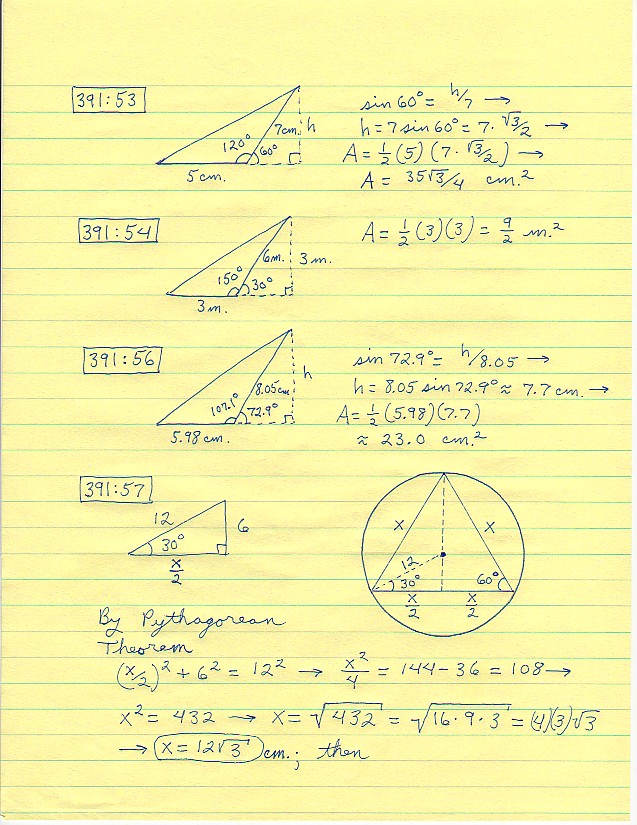 391:53
120° 60° 7cm. h
5 cm.
sin 60° = h/7 →
h = 7 sin 60° = 7 · √3/2 →
A = 1/2 (5) (7 · √3/2) →
A = 35√3/4 cm.²
391:54
150° 30° 6m. 3 m.
3 m.
A = 1/2 (3)(3) = 9/2 m.²
391:56
107.1° 72.9° 8.05cm h
5.98 cm.
sin 72.9° = h/8.05 →
h = 8.05 sin 72.9° ≈ 7.7 cm. →
A = 1/2 (5.98)(7.7)
≈ 23.0 cm.²
391:57
12 30° 6
x/2
x x
12
30° 60°
x/2 x/2
By Pythagorean
Theorem
(x/2)² + 6² = 12² → x²/4 = 144 - 36 = 108 →
x² = 432 → x = √432 = √16·9·3 = (4)(3)√3
→ x = 12√3 cm.; then